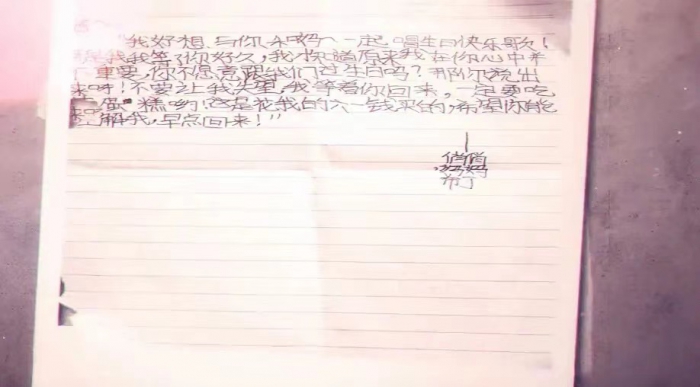 "我好想与你和妈一起唱生日快乐歌!
我等了你好久,我才知道原来我在你心中并
不重要,你不愿意跟我们过生日吗?那你说出
来呀!不要让我失望,我等着你回来,一定要吃
蛋糕哟!这是花我的六一钱买的,希望你能
理解我,早点回来!"
俏俏
妈妈
布丁